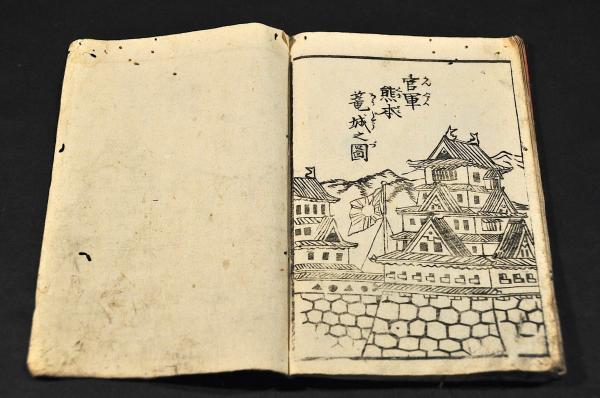 官軍
熊本
篭城之圖